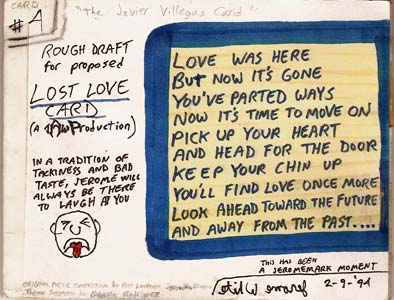 CARD
#A
"The Javier Villegas Card"
ROUGH DRAFT
for proposed
LOST LOVE
CARD
(a Production)
IN A TRADITION OF
TACKINESS AND BAD
TASTE, JEROME WILL
ALWAYS BE THERE
TO LAUGH AT YOU
LOVE WAS HERE
BUT NOW IT'S GONE
YOU'VE PARTED WAYS
NOW IT'S TIME TO MOVE ON
PICK UP YOUR HEART
AND HEAD FOR THE DOOR
KEEP YOUR CHIN UP
YOU'LL FIND LOVE ONCE MORE
LOOK AHEAD TOWARD THE FUTURE
AND AWAY FROM THE PAST....
THIS HAS BEEN
A JEROMEMARK MOMENT
2-9-'94
ORIGINAL POETIC COMPOSITION by
Theme suggested by Gabriela Rodriguez